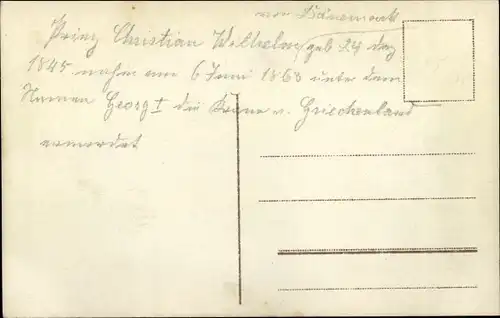 von Dänemark
Prinz Christian Wilhelm geb 24 Dez
1845 nahm am 6 Juni 1863 unter dem
Namen Georg I die Krone v. Griechenland
ermordet